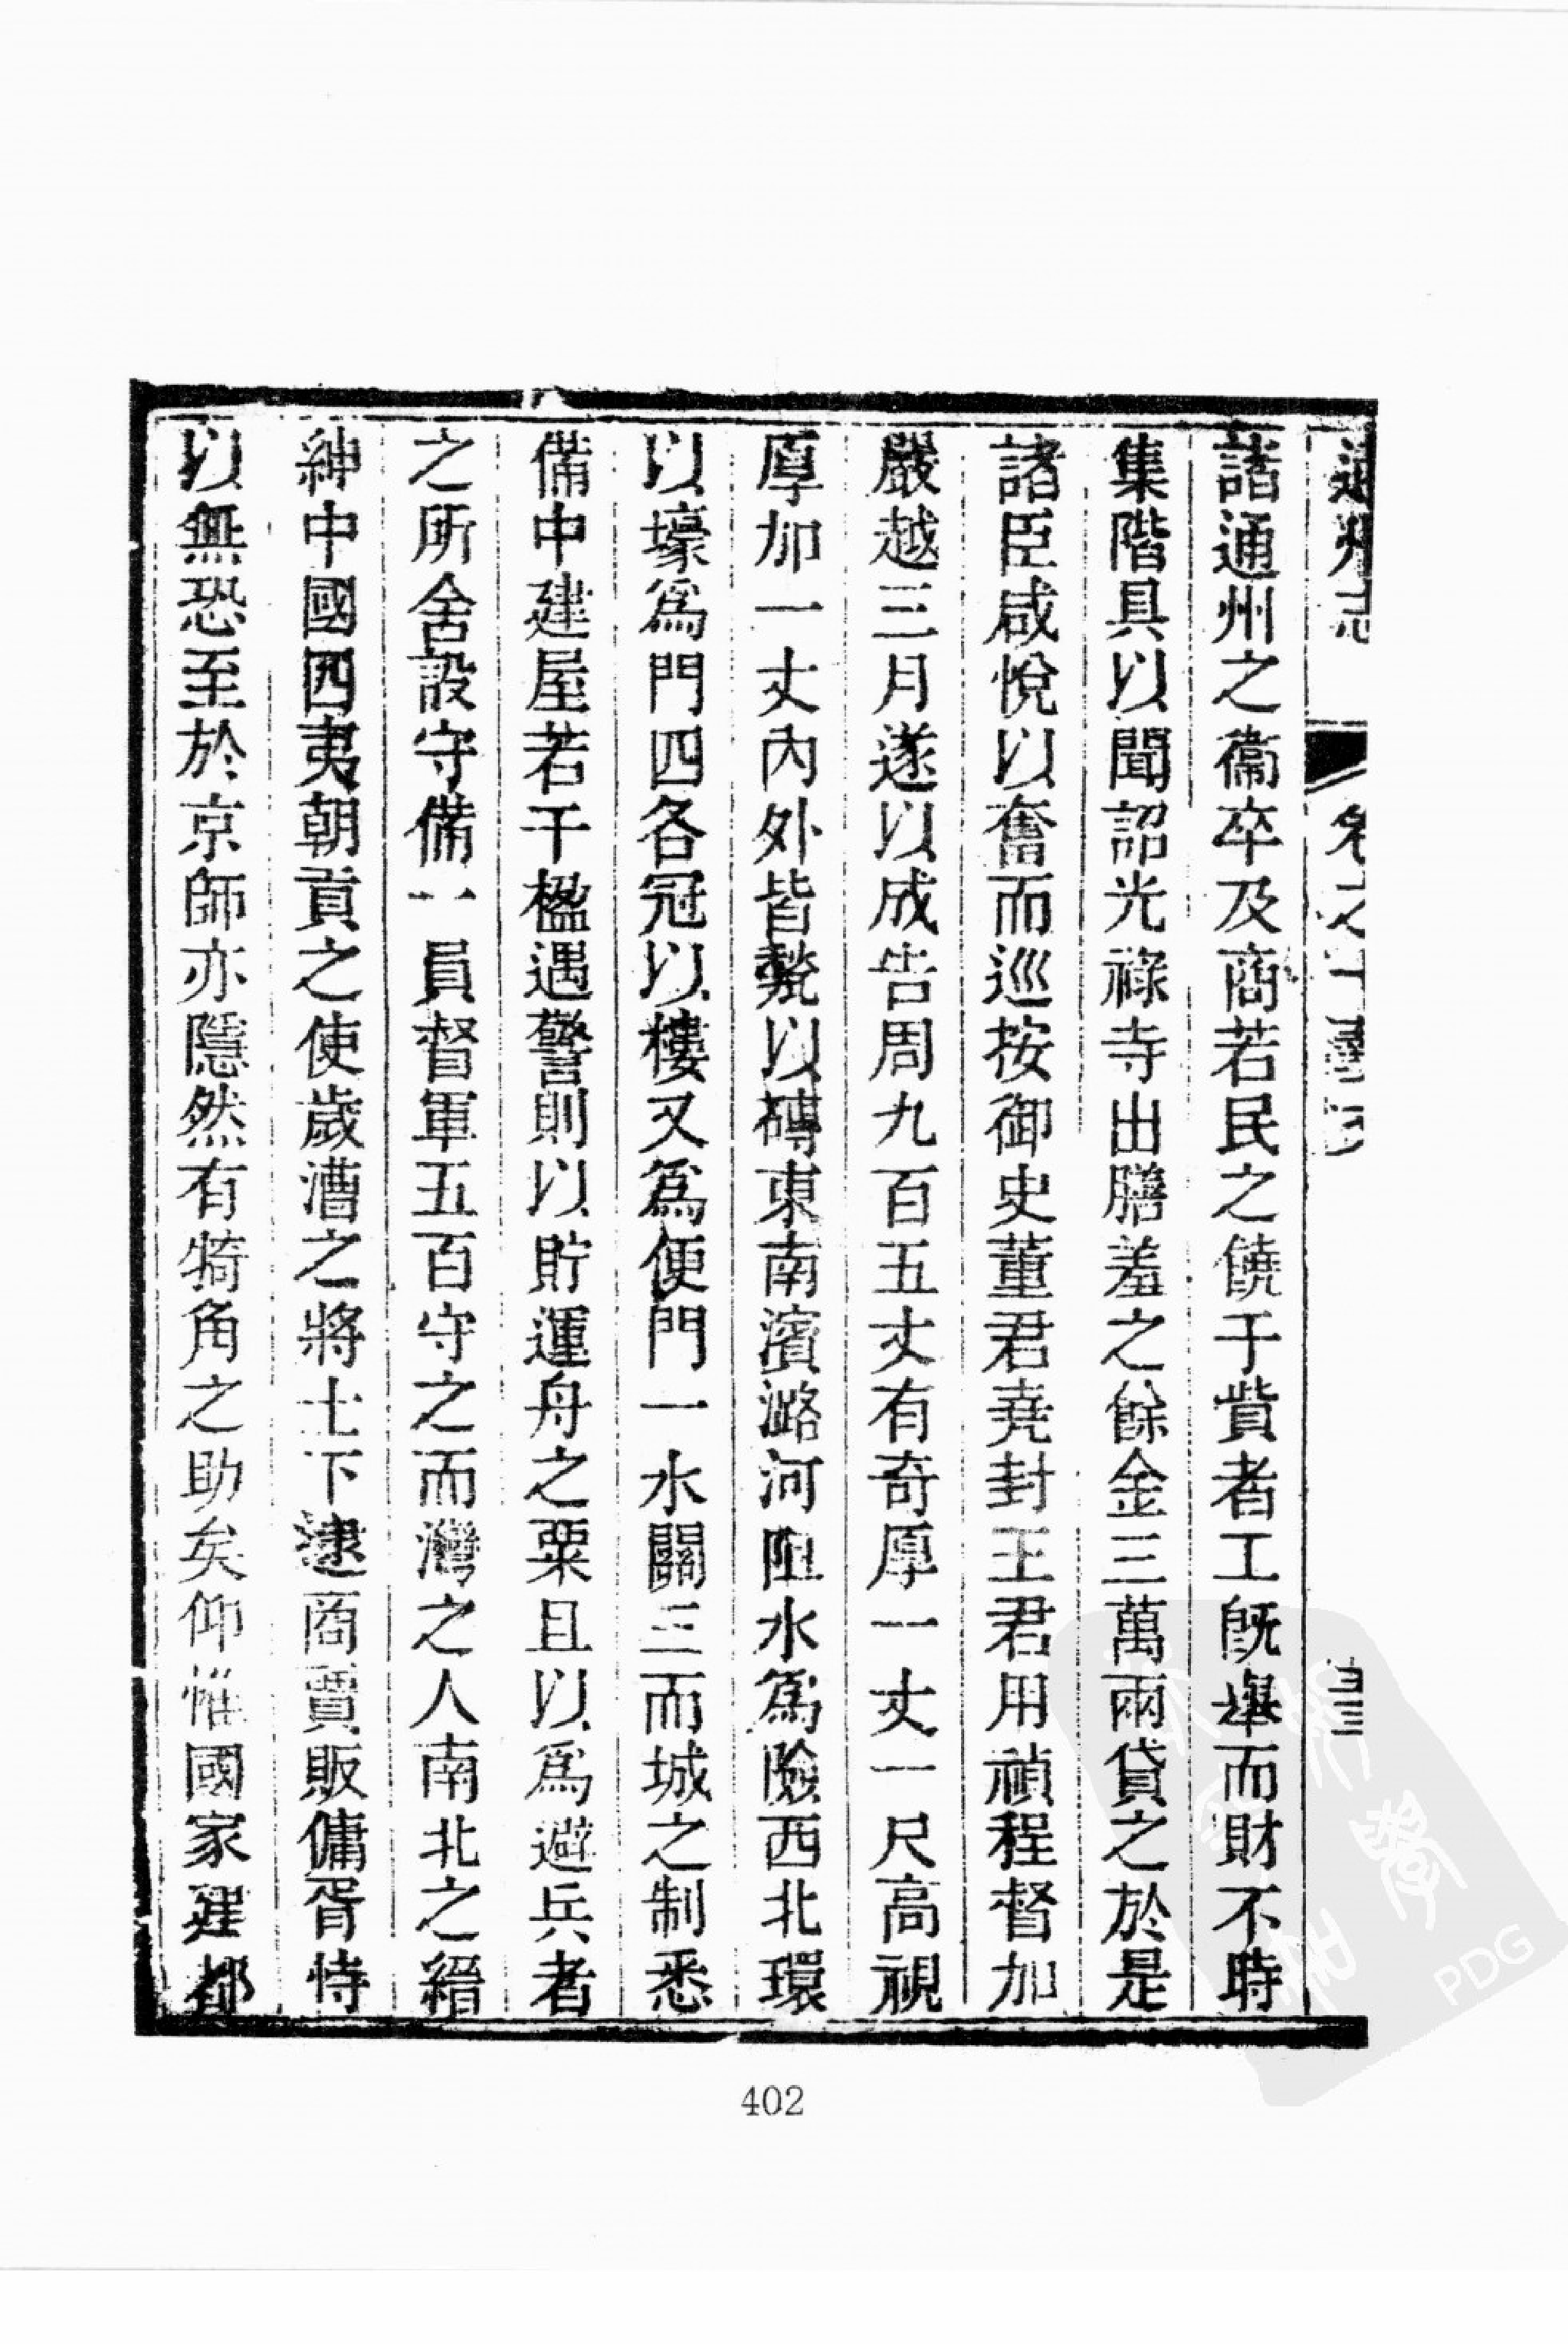 通州志 卷之十藝文 三
諸通州之衞卒及商若民之饒于貲者工既舉而財不時
集階具以聞詔光祿寺出膳羞之餘金三萬兩貸之於是
諸臣咸悅以奮而巡按御史董君堯封王君用禎程督加
嚴越三月遂以成告周九百五丈有奇厚一丈一尺高視
厚加一丈內外皆甃以磚東南濱潞河阻水爲險西北環
以壕爲門四各冠以樓又爲便門一水關三而城之制悉
備中建屋若干楹遇警則以貯運舟之粟且以爲避兵者
之所舍設守備一員督軍五百守之而灣之人南北之縉
紳中國四夷朝貢之使歲漕之將士下逮商賈販傭胥恃
以無恐至於京師亦隱然有犄角之助矣仰惟國家建都
402
PDG